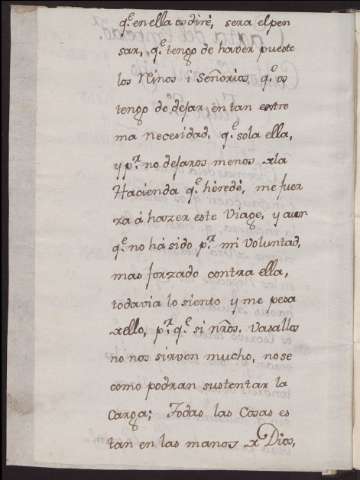 q.^e en ella os diré, sera el pen
sar, q.^e tengo de haver puesto
los Reinos i Señorios, q.^e os
tengo de dejar, en tan estre
ma necesidad, q.^e sola ella,
y p.^r no dejaros menos xla
Hacienda q.^e héredé, me fuer
za á hazer este Viage, y aun
q.^e no há sido p.^r mi voluntad,
mas forzado contra ella,
todavia lo siento y me pesa
xello, p.^r q.^e si nr̃os. vasallos
no nos sirven mucho, no se
como podran sustentar la
Carga; Todas las Cosas es
tan en las manos x Dios,